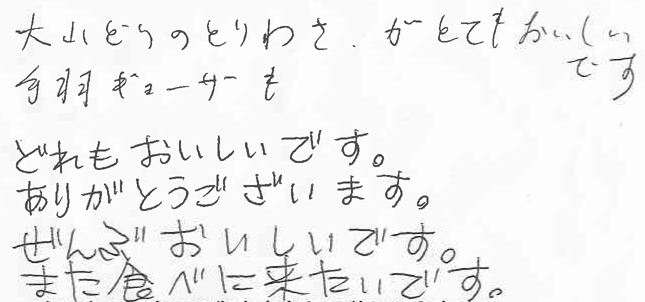 大山どりのとりわさ.がとてもおいしい
手羽ギョーザも
です
どれもおいしいです。
ありがとうございます。
ぜんぶおいしいです。
また食べに来たいです。